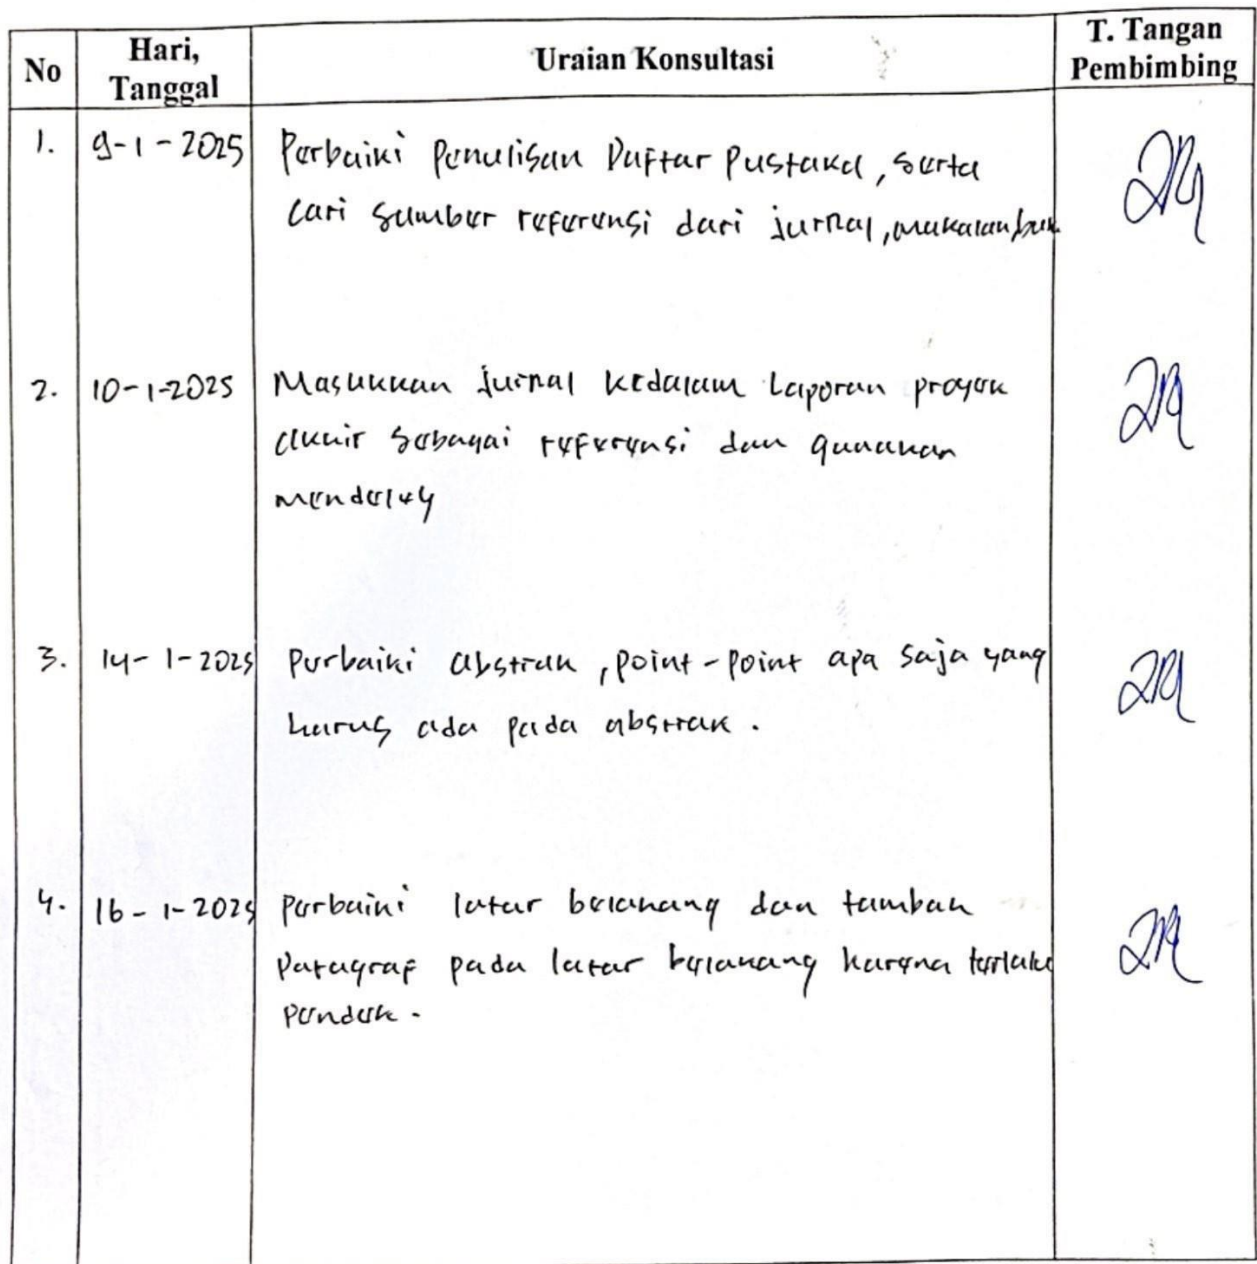 No Hari, Tanggal Uraian Konsultasi T. Tangan Pembimbing
1. 9-1-2025 Perbaiki Penulisan Daftar Pustaka, serta
cari sumber referensi dari jurnal, makalah,buk
2. 10-1-2025 Masukkan jurnal kedalam Laporan proyek
akhir sebagai referensi dan gunakan
mendeley
3. 14-1-2025 Perbaiki abstrak, point-point apa saja yang
harus ada pada abstrak.
4. 16-1-2025 Perbaiki latar belakang dan tambah
Paragraf pada latar belakang karena terlalu
Pendek.